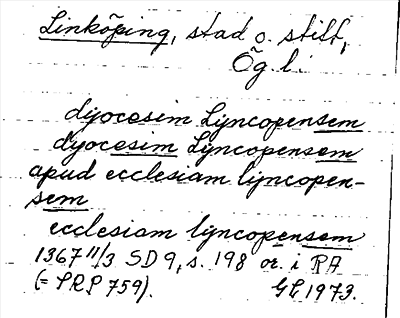 Linköping, stad o. stift,
Ög l.
dyocesim Lyncopensem
dyocesim Lyncopensem
apud ecclesiam lyncopen-
sem
ecclesiam lyncopensem
1367 11/3 SD 9, s. 198 or. i RA
(= SRP 759). GL 1973.